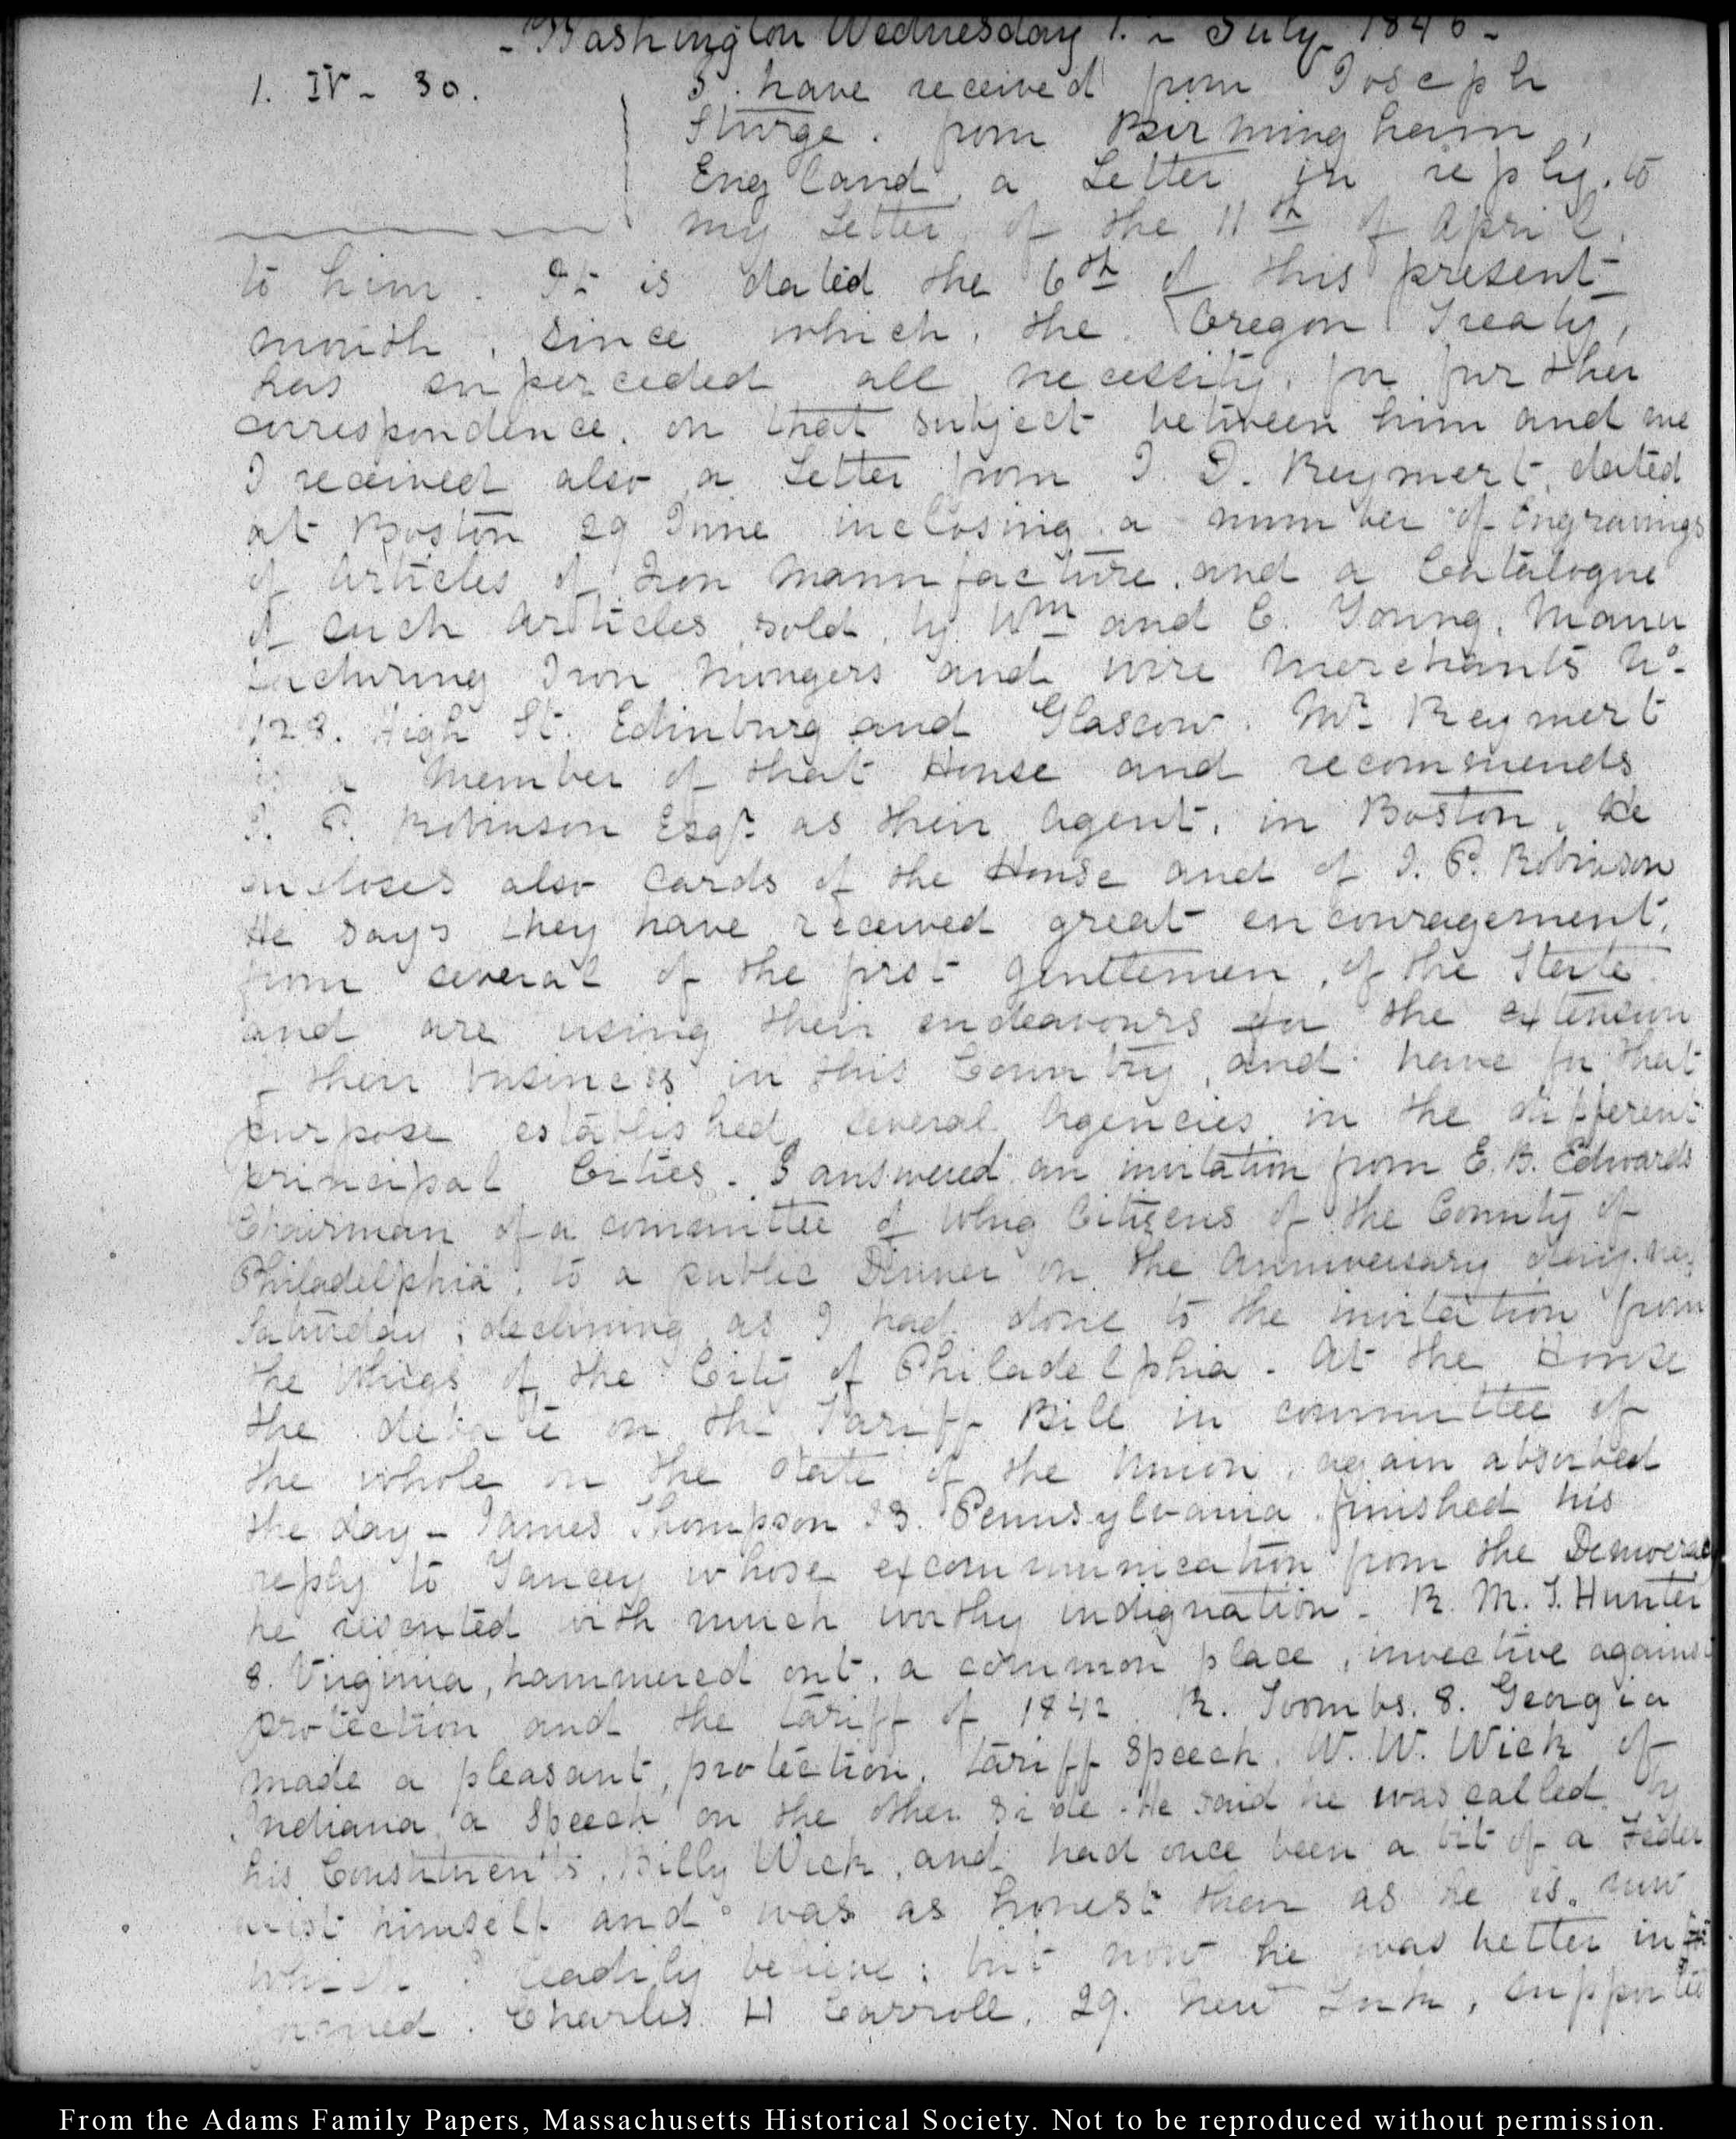 - Washington Wednesday 1. ~ July 1846 -
1. IV - 30.
I have received from Joseph
Sturge. from Birmingham,
England, a Letter in reply, to
my Letter, of the 11th of April,
to him. It is dated the 6th of this present
month, since which, the Oregon Treaty,
has superceded all necessity, for further
correspondence, on that subject between him and me
I received also a Letter from J. D. Reymert, dated
at Boston 29 June inclosing a number of Engravings
of articles of Iron Manufacture, and a Catalogue
of such articles sold, by Wm and C. Young, Manu
facturing Iron Mongers and wire Merchants No.
128. High St. Edinburg and Glascow. Mr. Reymert
is a Member of that House and recommends
J. P. Robinson Esqr. as their Agent, in Boston. He
encloses also Cards of the House and of J. P. Robinson
He says they have received great encouragement,
from several of the first gentlemen, of the State
and are using their endeavours for the extension
of their business in this Country, and have for that
purpose established, several Agencies in the different
principal Cities. I answered an invitation from E. B. Edwards
Chairman of a committee of Whig Citizens of the County of
Philadelphia, to a public Dinner on the Anniversary day, next
Saturday; declining as I had done to the invitation from
the Whigs of the City of Philadelphia. At the House
the debate on the Tariff Bill in committee of
the whole on the state of the Union, again absorbed
the day - James Thompson 23. Pennsylvania, finished his
reply to Yancey whose excommunication from the Democracy
he resented with much worthy indignation - R. M. T. Hunter
8. Virginia, hammered out, a common place, invective against
protection and the tariff of 1842. R. Toombs. 8. Georgia
made a pleasant, protection, tariff speech. W. W. Wick of
Indiana, a speech on the other side. He said he was called by
his Constituents, Billy Wick, and had once been a bit of a Feder
alist himself and was as honest then as he is, now
which I readily believe; but now he was better in
formed. Charles H Carroll, 29. New York, supported
From the Adams Family Papers, Massachusetts Historical Society. Not to be reproduced without permission.